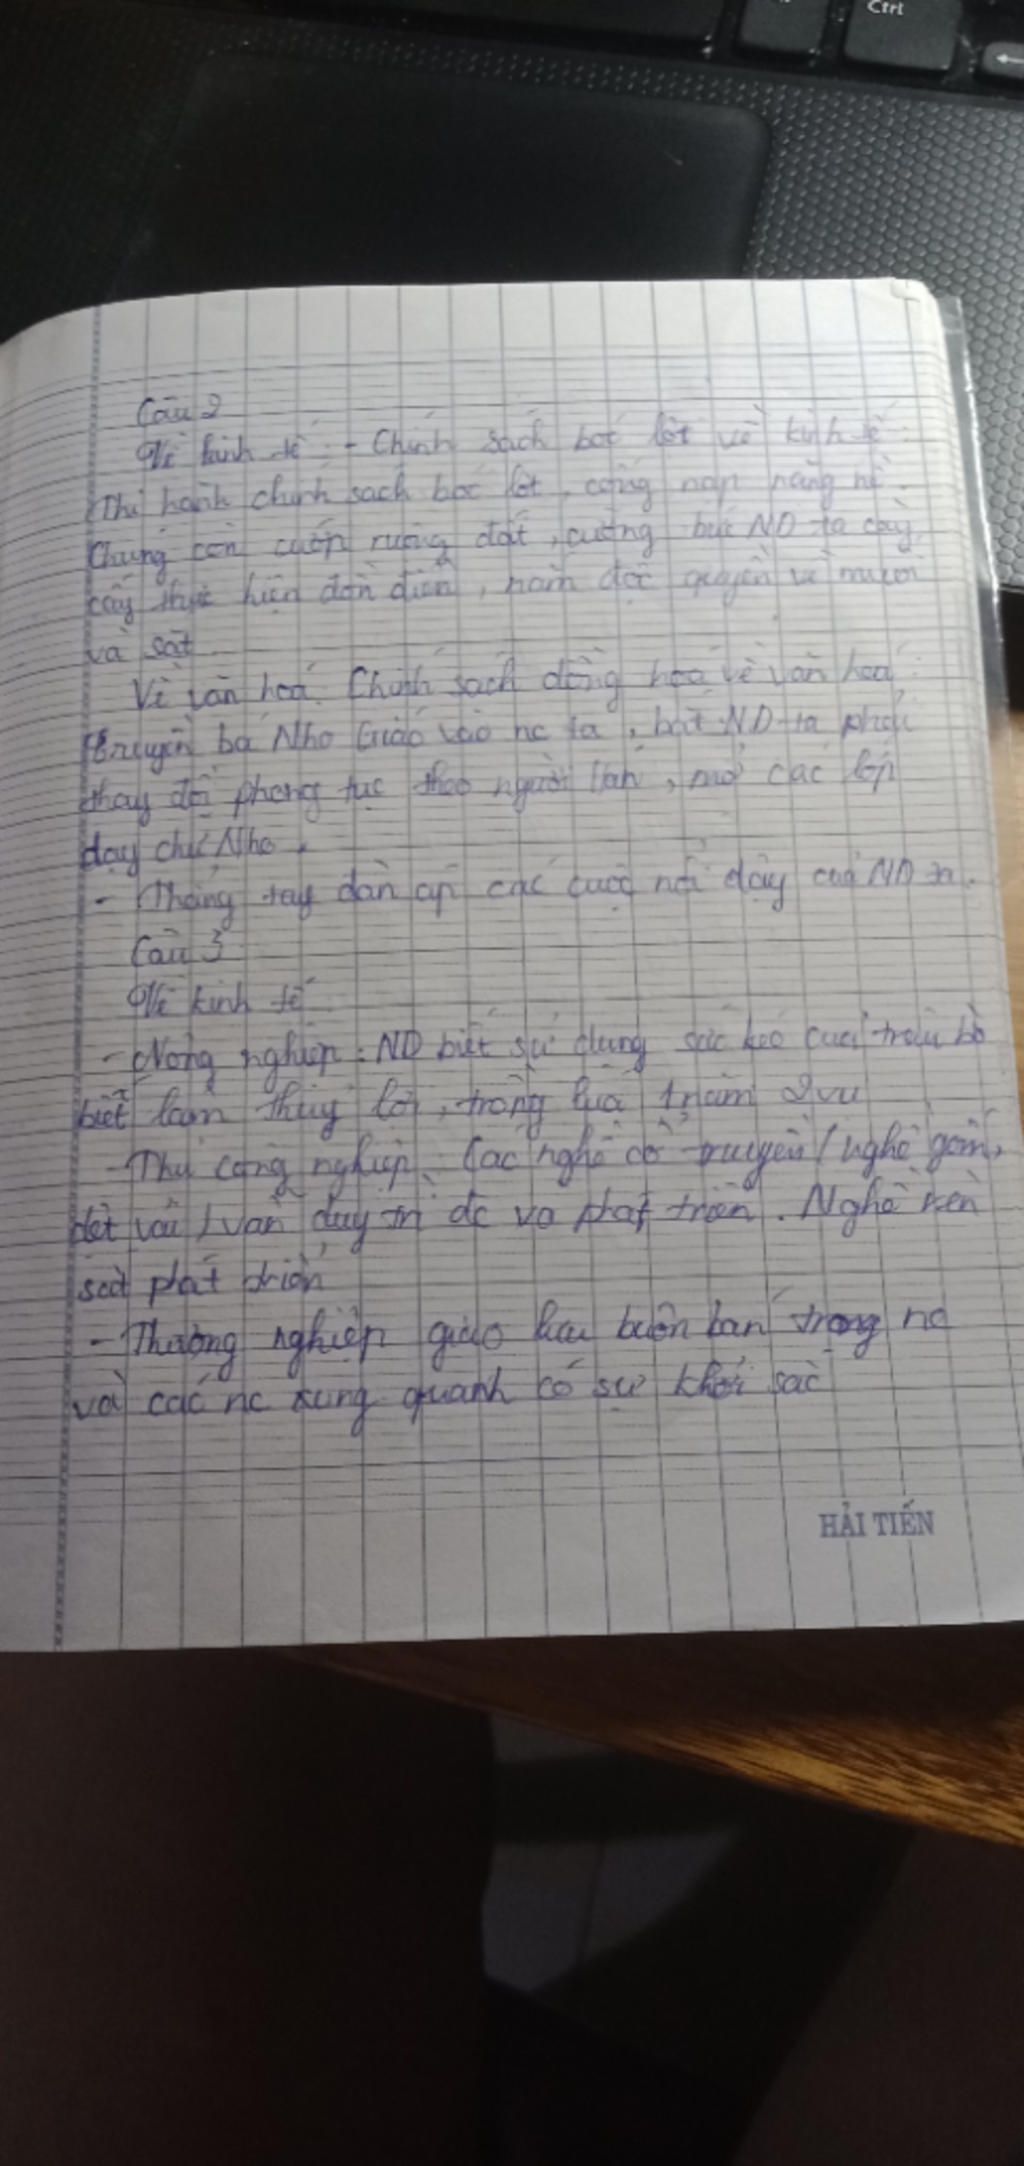 Ctrl
Câu 2
Về kinh tế : - Chính sách bóc lột về kinh tế :
Thi hành chính sách bóc lột, cống nạp nặng nề.
Chúng còn cướp ruộng đất, cưỡng bức ND ta cày
cấy thực hiện đồn điền, nắm độc quyền về muối
và sắt
Về văn hoá. Chính sách đồng hoá về văn hoá :
Truyền bá Nho Giáo vào nc ta, bắt ND ta phải
thay đổi phong tục theo người Hán, mở các lớp
dạy chữ Nho.
- Thẳng tay đàn áp các cuộc nổi dậy của ND ta.
Câu 3
Về kinh tế
- Nông nghiệp : ND biết sử dụng sức kéo của trâu bò
biết làm thủy lợi, trồng lúa 1 năm 2 vụ
- Thủ công nghiệp. Các nghề cổ truyền (nghề gốm,
dệt vải) vẫn duy trì đc và phát triển. Nghề rèn
sắt phát triển
- Thương nghiệp giao lưu buôn bán trong nc
và các nc xung quanh có sự khởi sắc
HẢI TIẾN